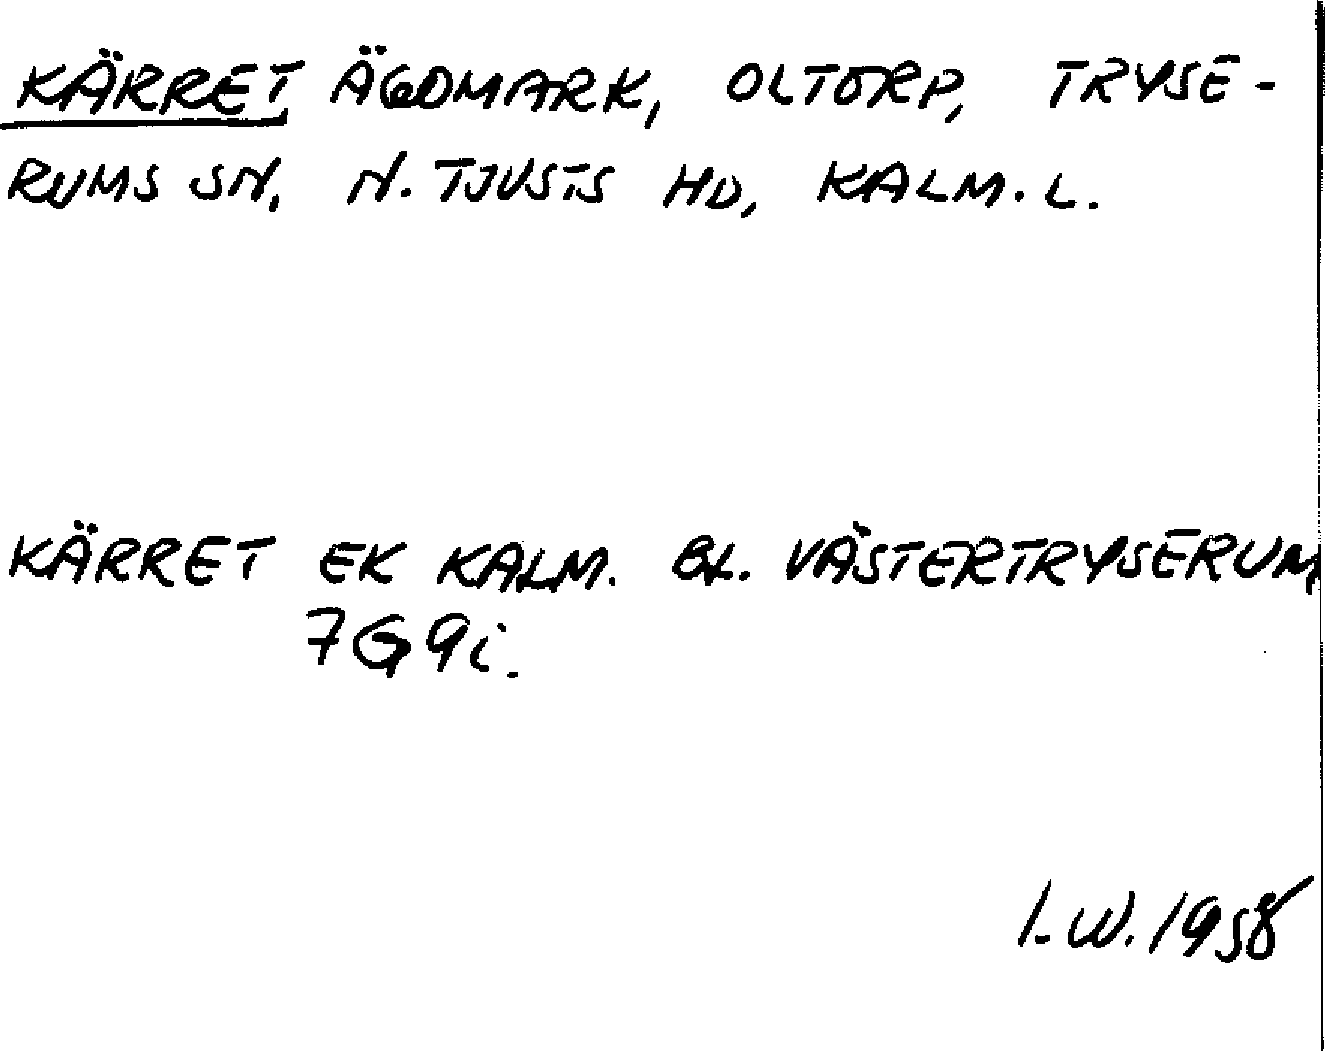 KÄRRET, ÄGOMARK, OLTORP, TRYSE-
RUMS SN, N. TJUSTS HD, KALM. L.
KÄRRET EK KALM. BL. VÄSTERTRYSERUM
7G9i.
I.W. 1958